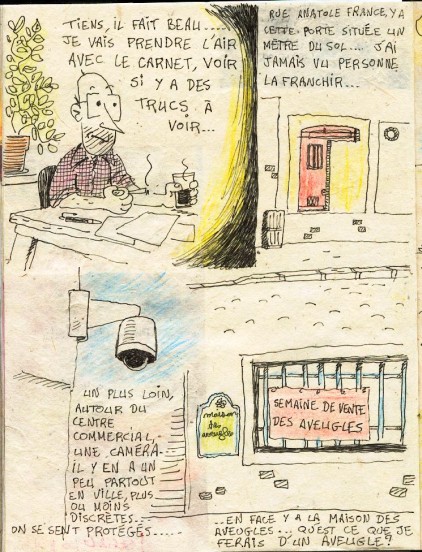 TIENS, IL FAIT BEAU.....
JE VAIS PRENDRE L'AIR
AVEC LE CARNET, VOIR
SI Y A DES
TRUCS À
VOIR...
RUE ANATOLE FRANCE, Y A
CETTE PORTE SITUÉE UN
MÈTRE DU SOL.... J'AI
JAMAIS VU PERSONNE
LA FRANCHIR...
UN PLUS LOIN,
AUTOUR DU
CENTRE
COMMERCIAL,
UNE CAMÉRA..
IL Y EN A UN
PEU PARTOUT
EN VILLE, PLUS
OU MOINS
DISCRÈTES...
ON SE SENT PROTÉGÉS.....
maison
des
aveugles
SEMAINE DE VENTE
DES AVEUGLES
..EN FACE Y A LA MAISON DES
AVEUGLES... QU'EST CE QUE JE
FERAIS D'UN AVEUGLE?